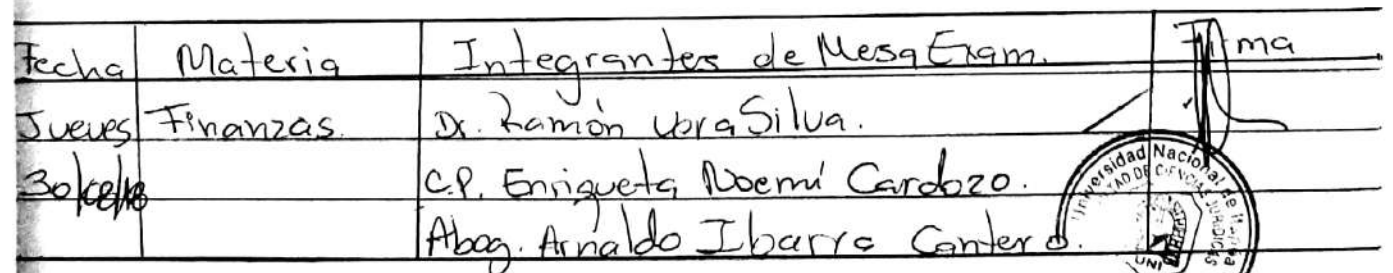 Fecha Materia Integrantes de Mesa Exam. Firma
Jueves Finanzas. Dr. Ramón Silva.
C.P. Enriqueta Noemí Cardozo.
Abog. Arnaldo Ibarra Cantero.
Universidad Nacional de
JURIDICAS
UNI